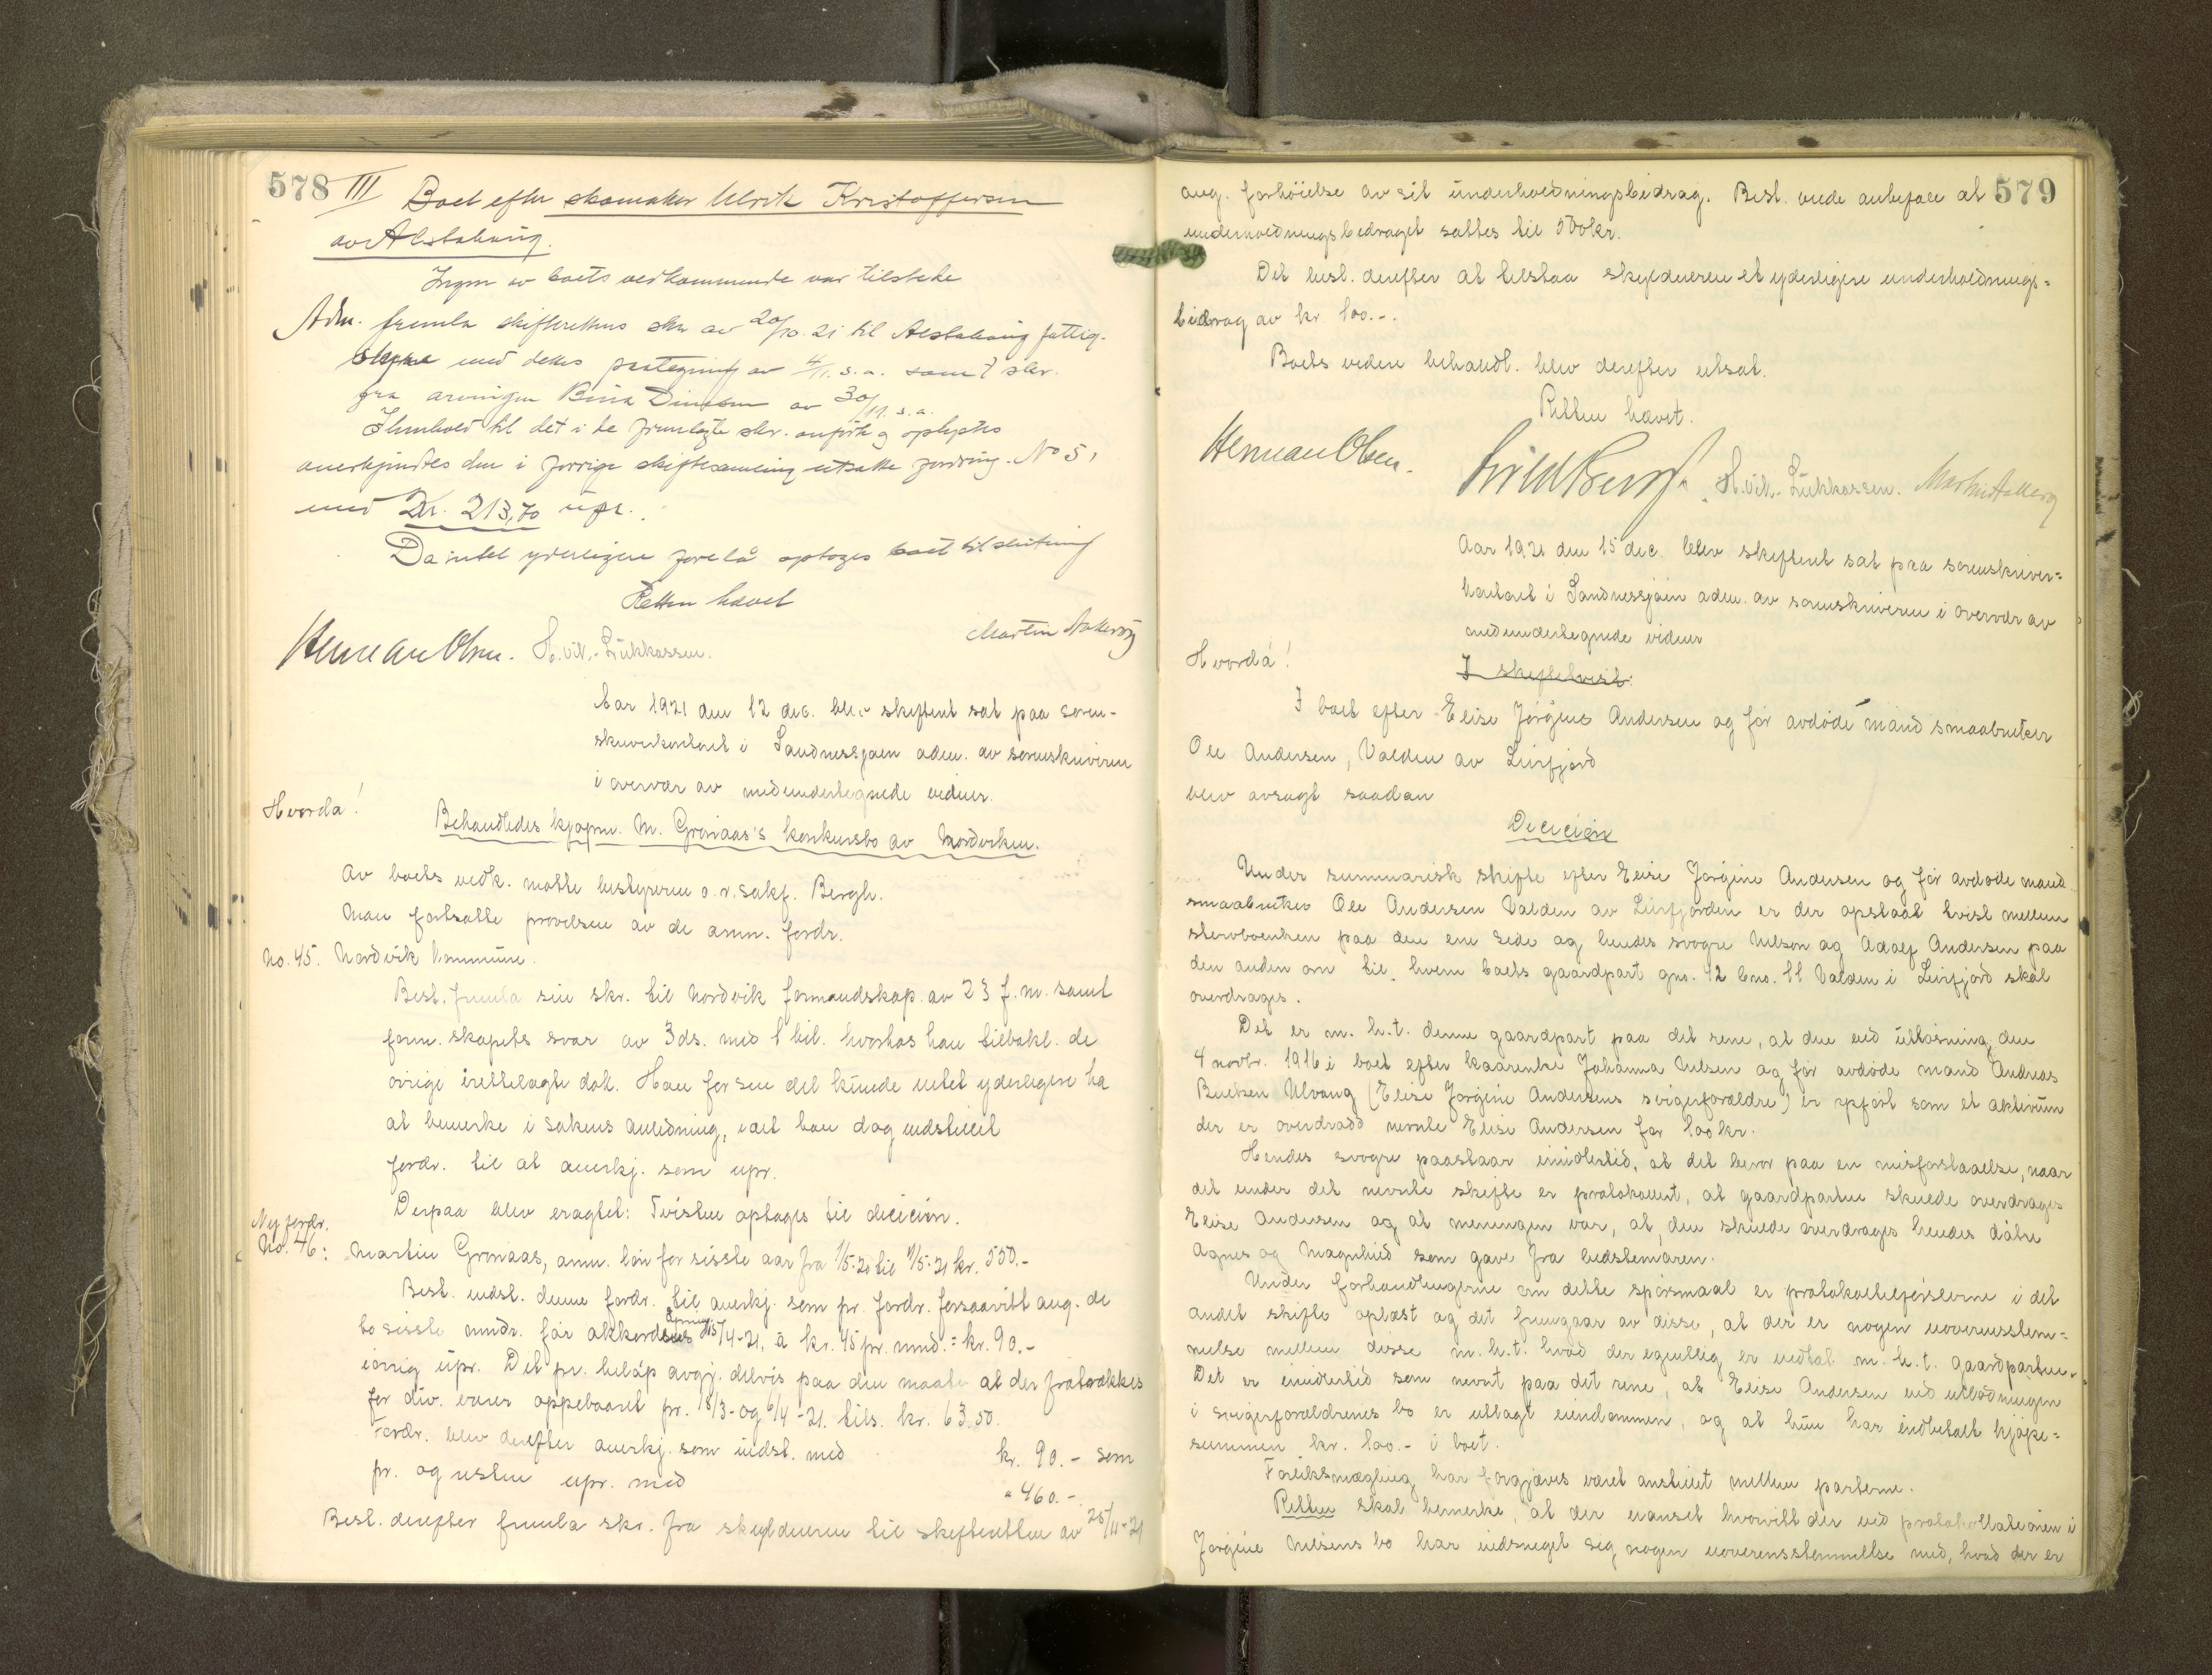 578 III Boet efter skomaker Ulrik Kristoffersen
av Alstahaug.
Ingen av boets vedkommende var tilstede
Adm. fremla skifterettens skr. av 20/10. 21 til Alstahaug fattig-
styre med dettes paategning av 4/11. s.a. samt skr.
fra arvingen av 30/11. s.a.
I henhold til det i de fremlagte skr. anførte og oplyste
anerkjendtes den i forrige skiftesamling utsatte fordring No 5,
med Kr. 213,70 upr.
Da intet yderligere forelå optoges boet til slutning
Retten hævet
Martin Aakerøy
Herman Olsen. H. vit. Lukkassen.
Aar 1921 den 12 dec. blev skifteret sat paa soren-
skriverkontoret i Sandnessjøen adm. av sorenskriveren
i overvær av medundertegnede vidner.
Hvorda!
Behandledes kjøpm. M. Grønaas's konkursbo av Nordviken.
Av boets vedk. møtte bestyreren o.r.sakf. Bergh.
Man fortsatte prøvelsen av de anm. fordr.
No. 45. Nordvik kommune.
Best. fremla sin skr. til Nordvik formandskap av 23 f.m. samt
form.skapets svar av 3 ds. med 1 bil. hvorhos han tilbakl. de
øvrige irettelagte dok. Han for sin del kunde intet yderligere ha
at bemerke i sakens anledning, idet han dog indstillet
fordr. til at anerkj. som upr.
Derpaa blev eragtet: Tvisten optages til decicion.
Ny fordr.
No. 46: Martin Grønaas, anm. løn for sisste aar fra 1/5-20 til 1/5-21 kr. 550.-
Best. indst. denne fordr. til anerkj. som pr. fordr. forsaavitt ang. de
to sisste mndr. før akkordens 15/4-21, à kr. 45 pr. mnd. = kr. 90.-
iøvrig upr. Det pr. beløp avgj. delvis paa den maate at der fratrækkes
for div. varer oppebaaret pr. 18/3- og 6/4-21. tils. kr. 63.50.
Fordr. blev derefter anerkj. som indst. med kr. 90.- som
pr. og resten upr. med " 460.-
Best. derefter fremla skr. fra skyldneren til skifteretten av 25/11-21
ang. forhøielse av sit underholdningsbidrag. Best. vilde anbefale at 579
underholdningsbidraget sattes til 500 kr.
Det besl. derefter at tilstaa skyldneren et yderligere underholdnings=
bidrag av kr. 100.-.
Boets videre behandl. blev derefter utsat.
Retten hævet.
Herman Olsen. H. vit. Lukkassen. Martin Aakerøy
Aar 1921 den 15 dec. blev skifteret sat paa sorenskriver=
kontoret i Sandnessjøen adm. av sorenskriveren i overvær av
medundertegnede vidner
Hvorda!
I skiftetvist:
I boet efter Elise Jørgine Andersen og før avdøde mand smaabruker
Ole Andersen, Valden av Leirfjord
blev avsagt saadan
Decicion
Under summarisk skifte efter Elise Jørgine Andersen og før avdøde mand
smaabruker Ole Andersen Valden av Leirfjorden er der opstaat tvist mellem
stervboenken paa den ene side og hendes svogre Nilson og Adolf Andersen paa
den anden om til hvem boets gaardpart gno. 12 bno. 11 Valden i Leirfjord skal
overdrages.
Det er m.h.t. denne gaardpart paa det rene, at den ved utløsning den
4 novbr. 1916 i boet efter kaarenke Johanna Nilsen og før avdøde mand Andreas
Ulvang (Elise Jørgine Andersens svigerforældre) er opført som et aktivum
der er overdradd nevnte Elise Andersen for 100 kr.
Hendes svogre paastaar imidlertid, at det beror paa en misforstaaelse, naar
det under det nevnte skifte er protokollert, at gaardparten skulde overdrages
Elise Andersen og at meningen var, at den skulde overdrages hendes døtre
Agnes og Magnhild som gave fra bedstemoren.
Under forhandlingerne om dette spørsmaal er protokoltilførslerne i det
andet skifte oplæst og det fremgaar av disse, at der er nogen uoverensstem=
melse mellem disse m.h.t. hvad der egentlig er vedtat m.h.t. gaardparten.
Det er imidlertid som nevnt paa det rene, at Elise Andersen ved utlodningen
i svigerforældrenes bo er utlagt eiendommen, og at hun har indbetalt kjøpe=
summen kr. 100.- i boet.
Forliksmægling har forgjæves været anstillet mellem parterne.
Retten skal bemerke, at der uanset hvorvitt der ved protokollationen i
Jørgine Nilsens bo har indsneget sig nogen uoverensstemmelse med, hvad der er